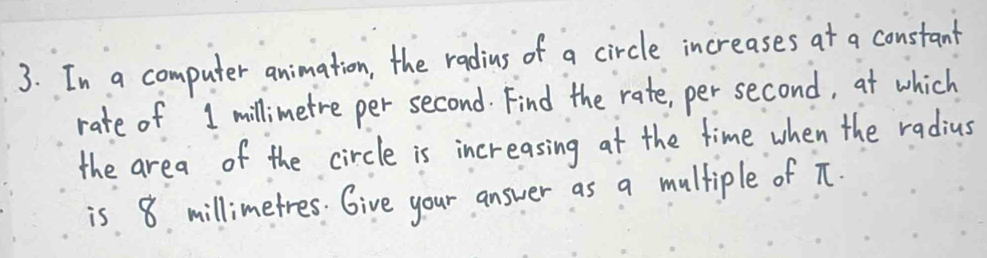 3. In a computer animation, the radius of a circle increases at a constant
rate of 1 millimetre per second. Find the rate, per second, at which
the area of the circle is increasing at the time when the radius
is 8 millimetres. Give your answer as a multiple of π.